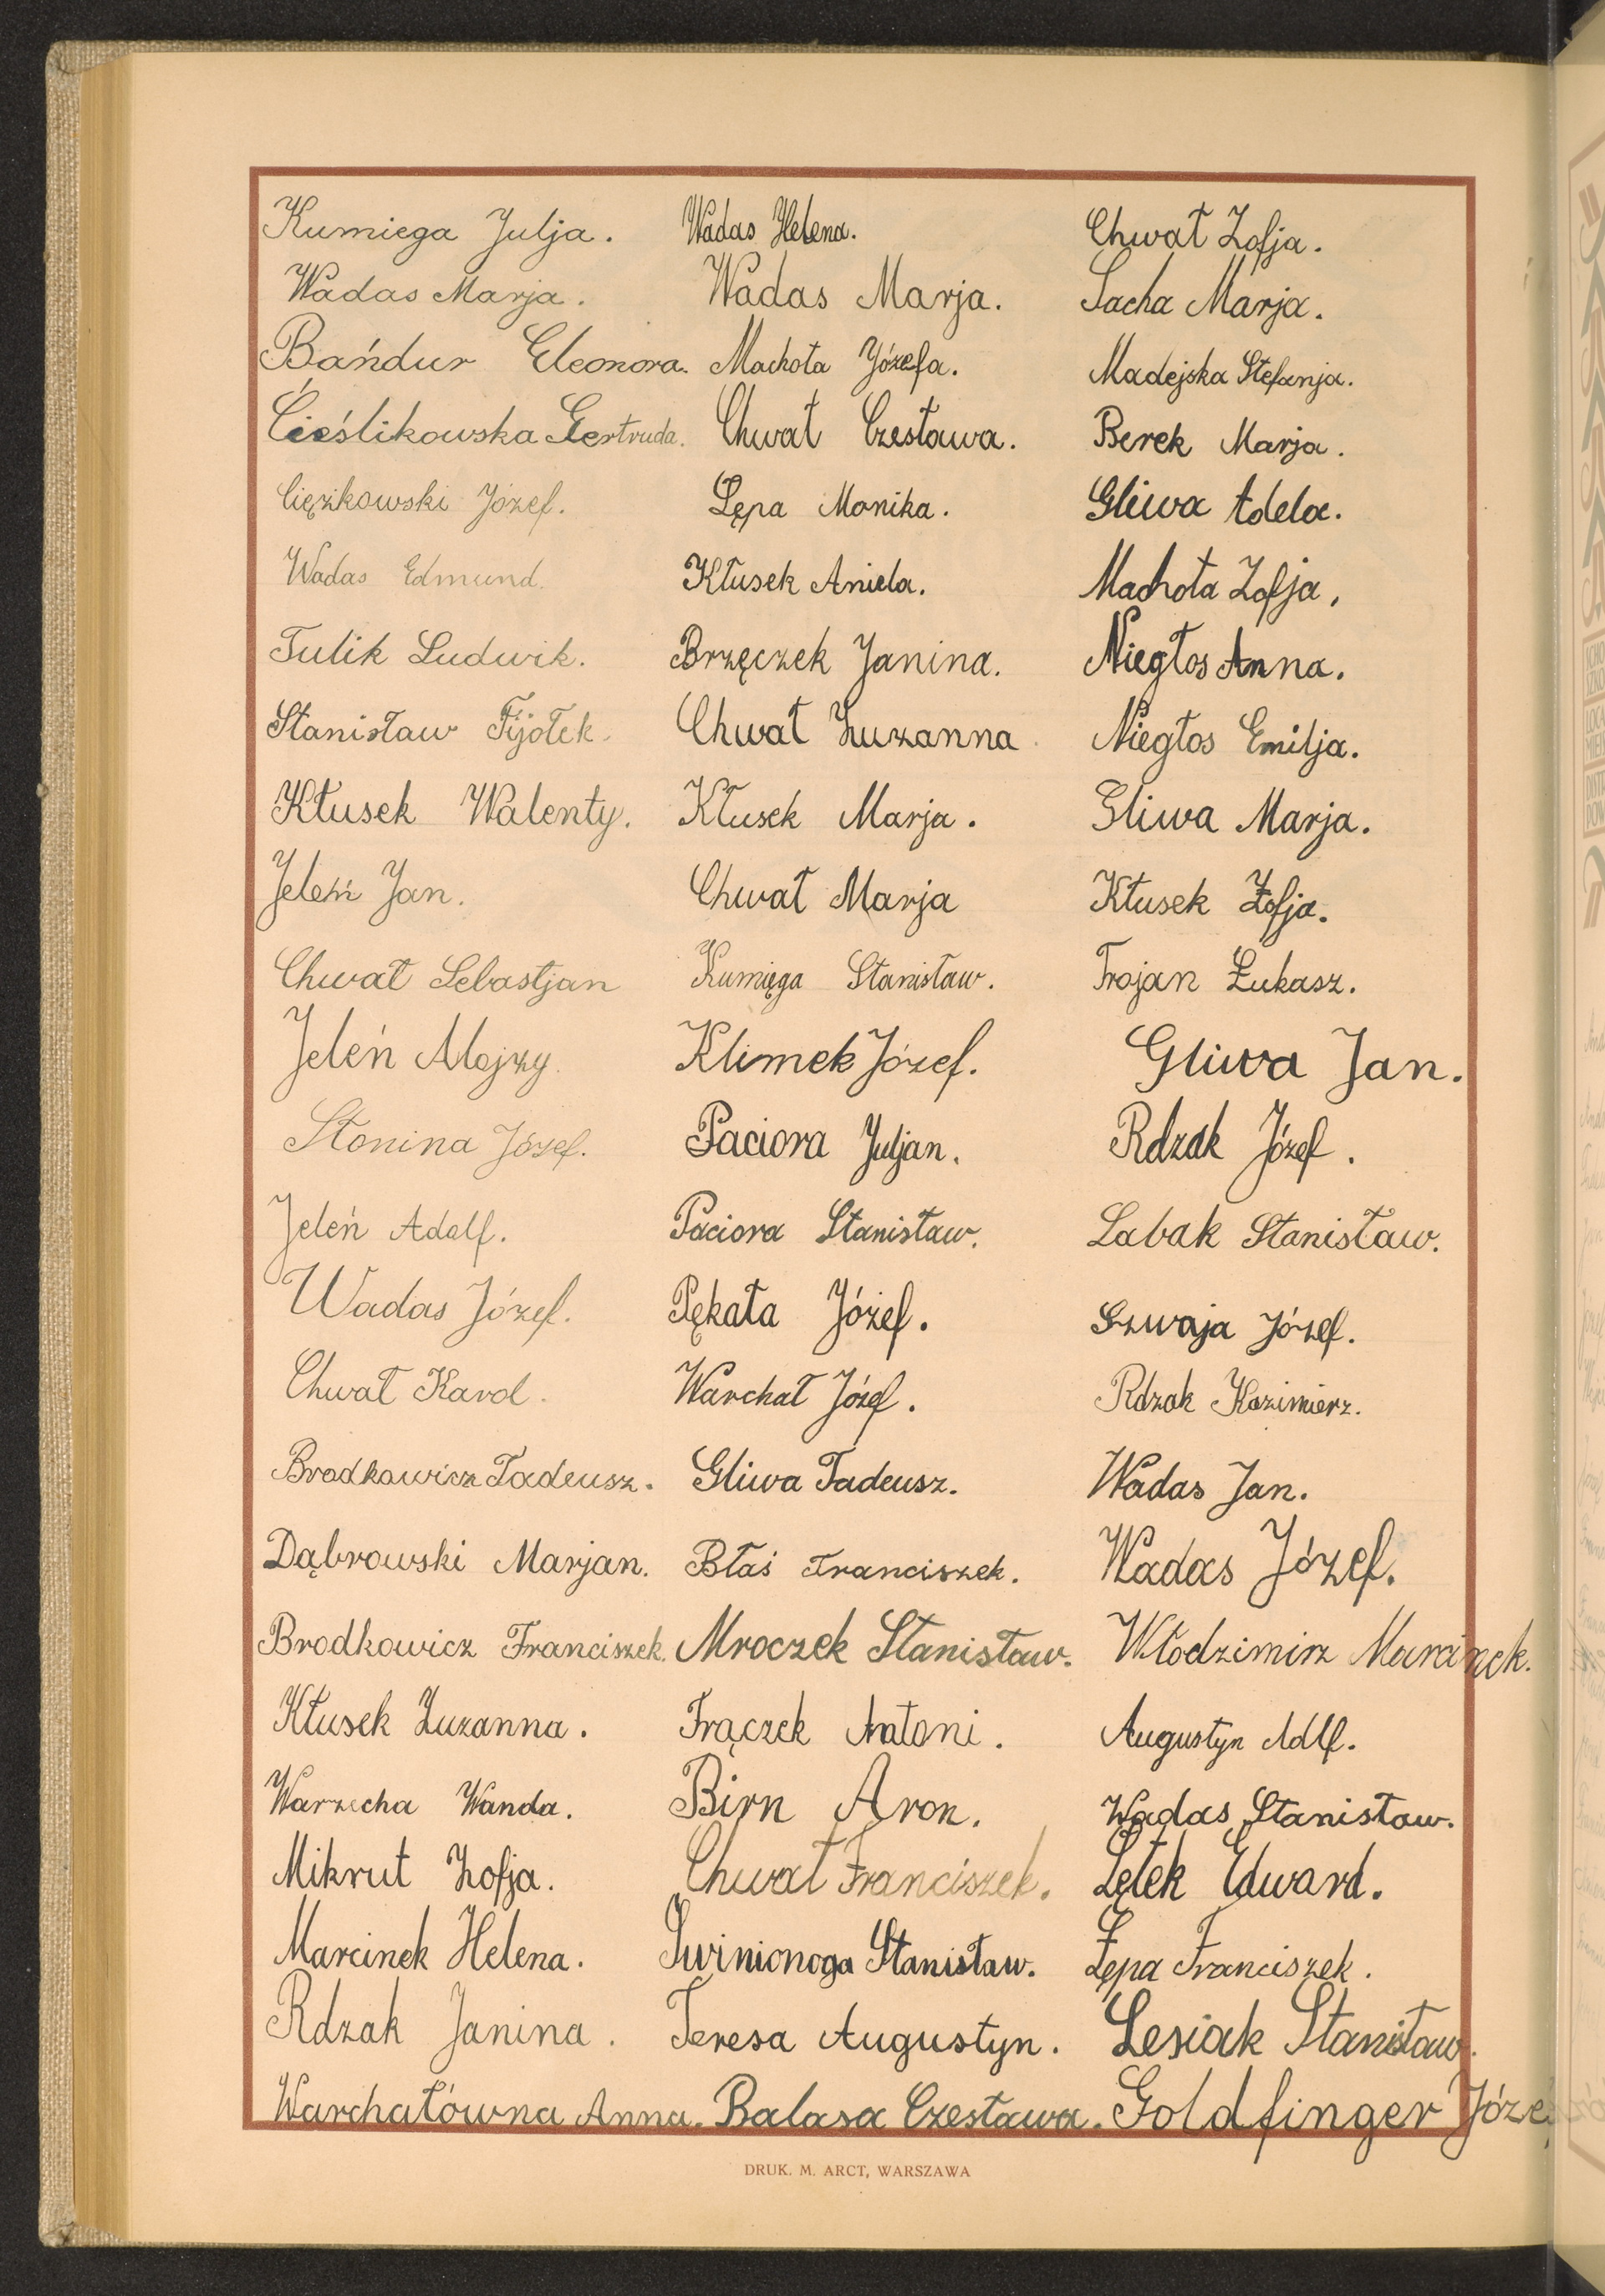 Kumiega Julja. Wadas Helena. Chwat Zofja.
Wadas Marja. Wadas Marja. Sacha Marja.
Bańdur Eleonora. Machota Józefa. Madejska Stefanja.
Cieślikowska Gertruda. Chwat Czestawa. Berek Marja.
Ciężkowski Józef. Lępa Monika. Gliwa Adela.
Wadas Edmund. Kłusek Aniela. Machota Zofja,
Tulik Ludwik. Brzęczek Janina. Niegłos Anna.
Stanisław Fijołek. Chwat Zuzanna. Niegłos Emilja.
Kłusek Walenty. Kłusek Marja. Gliwa Marja.
Jeleń Jan. Chwat Marja Kłusek Zofja.
Chwat Sebastjan Kumięga Stanisław. Trojan Łukasz.
Jeleń Alojzy. Klimek Józef. Gliwa Jan.
Słonina Józef. Paciora Juljan. Rdzak Józef.
Jeleń Adolf. Paciora Stanisław. Labak Stanisław.
Wadas Józef. Pękata Józef. Szwaja Józef.
Chwat Karol. Warchał Józef. Rdzak Kazimierz.
Brodkowicz Tadeusz. Gliwa Tadeusz. Wadas Jan.
Dąbrowski Marjan. Błaś Franciszek. Wadas Józef.
Brodkowicz Franciszek. Mroczek Stanisław. Włodzimirz Marcinek.
Kłusek Zuzanna. Frączek Antoni. Augustyn Adlf.
Warzecha Wanda. Birn Aron. Wadas Stanisław.
Mikrut Zofja. Chwat Franciszek. Lętek Edward.
Marcinek Helena. Świnionoga Stanisław. Łępa Franciszek.
Rdzak Janina. Teresa Augustyn. Lesiak Stanisław.
Warchałówna Anna. Balasa Czesława. Goldfinger Józe
DRUK. M. ARCT, WARSZAWA